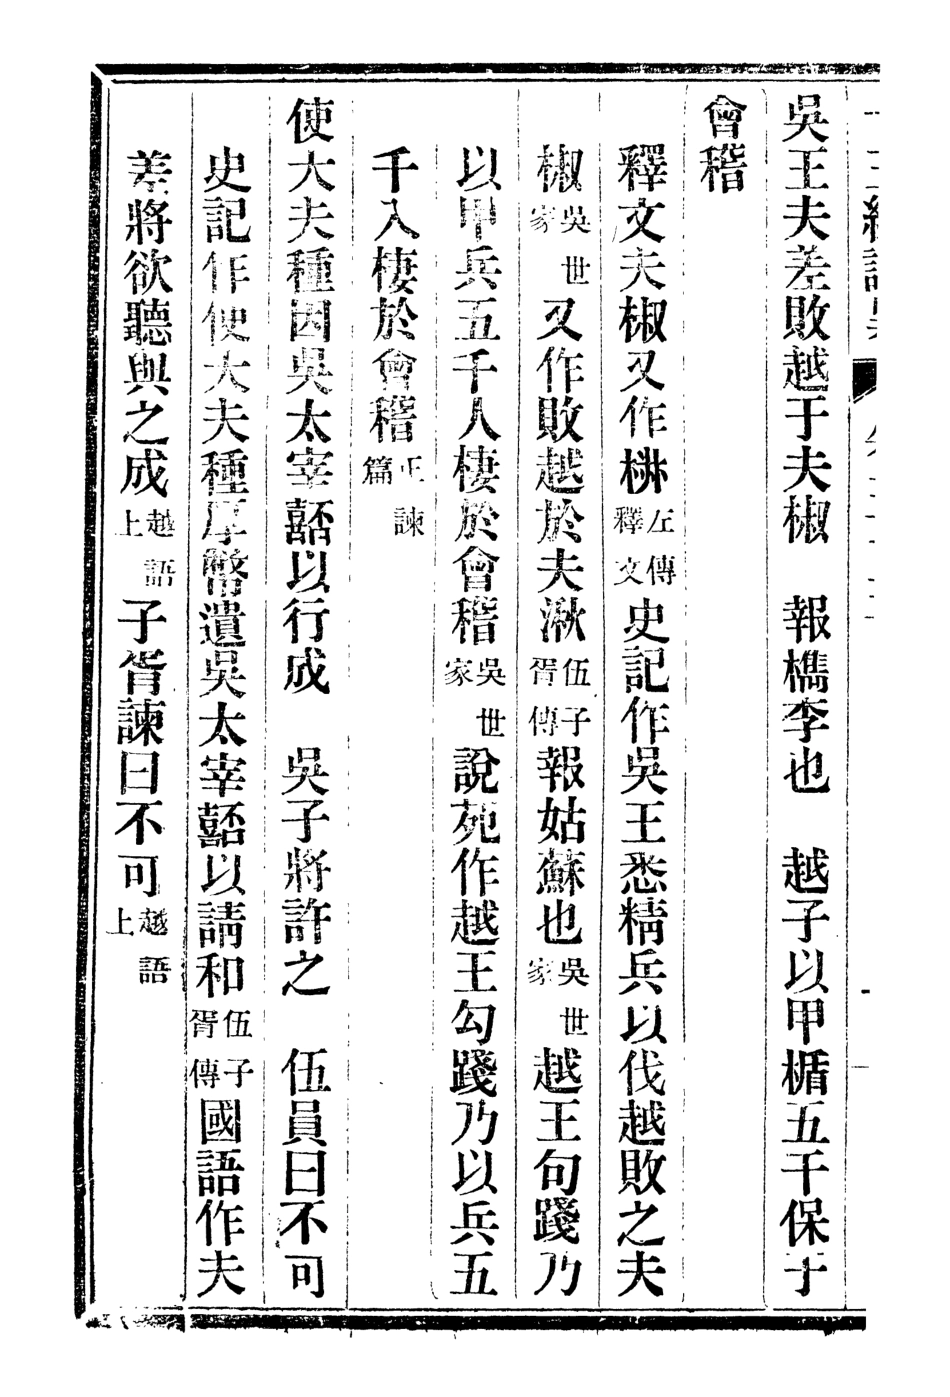 吳王夫差敗越于夫椒　報檇李也　越子以甲楯五千保于
會稽
釋文夫椒又作𣓉左傳釋文史記作吳王悉精兵以伐越敗之夫
椒吳世家又作敗越於夫湫伍子胥傳報姑蘇也吳世家越王句踐乃
以甲兵五千人棲於會稽吳世家說苑作越王勾踐乃以兵五
千入棲於會稽正諫篇
使大夫種因吳太宰嚭以行成　吳子將許之　伍員曰不可
史記作使大夫種厚幣遺吳太宰嚭以請和伍子胥傳國語作夫
差將欲聽與之成越語上子胥諫曰不可越語上